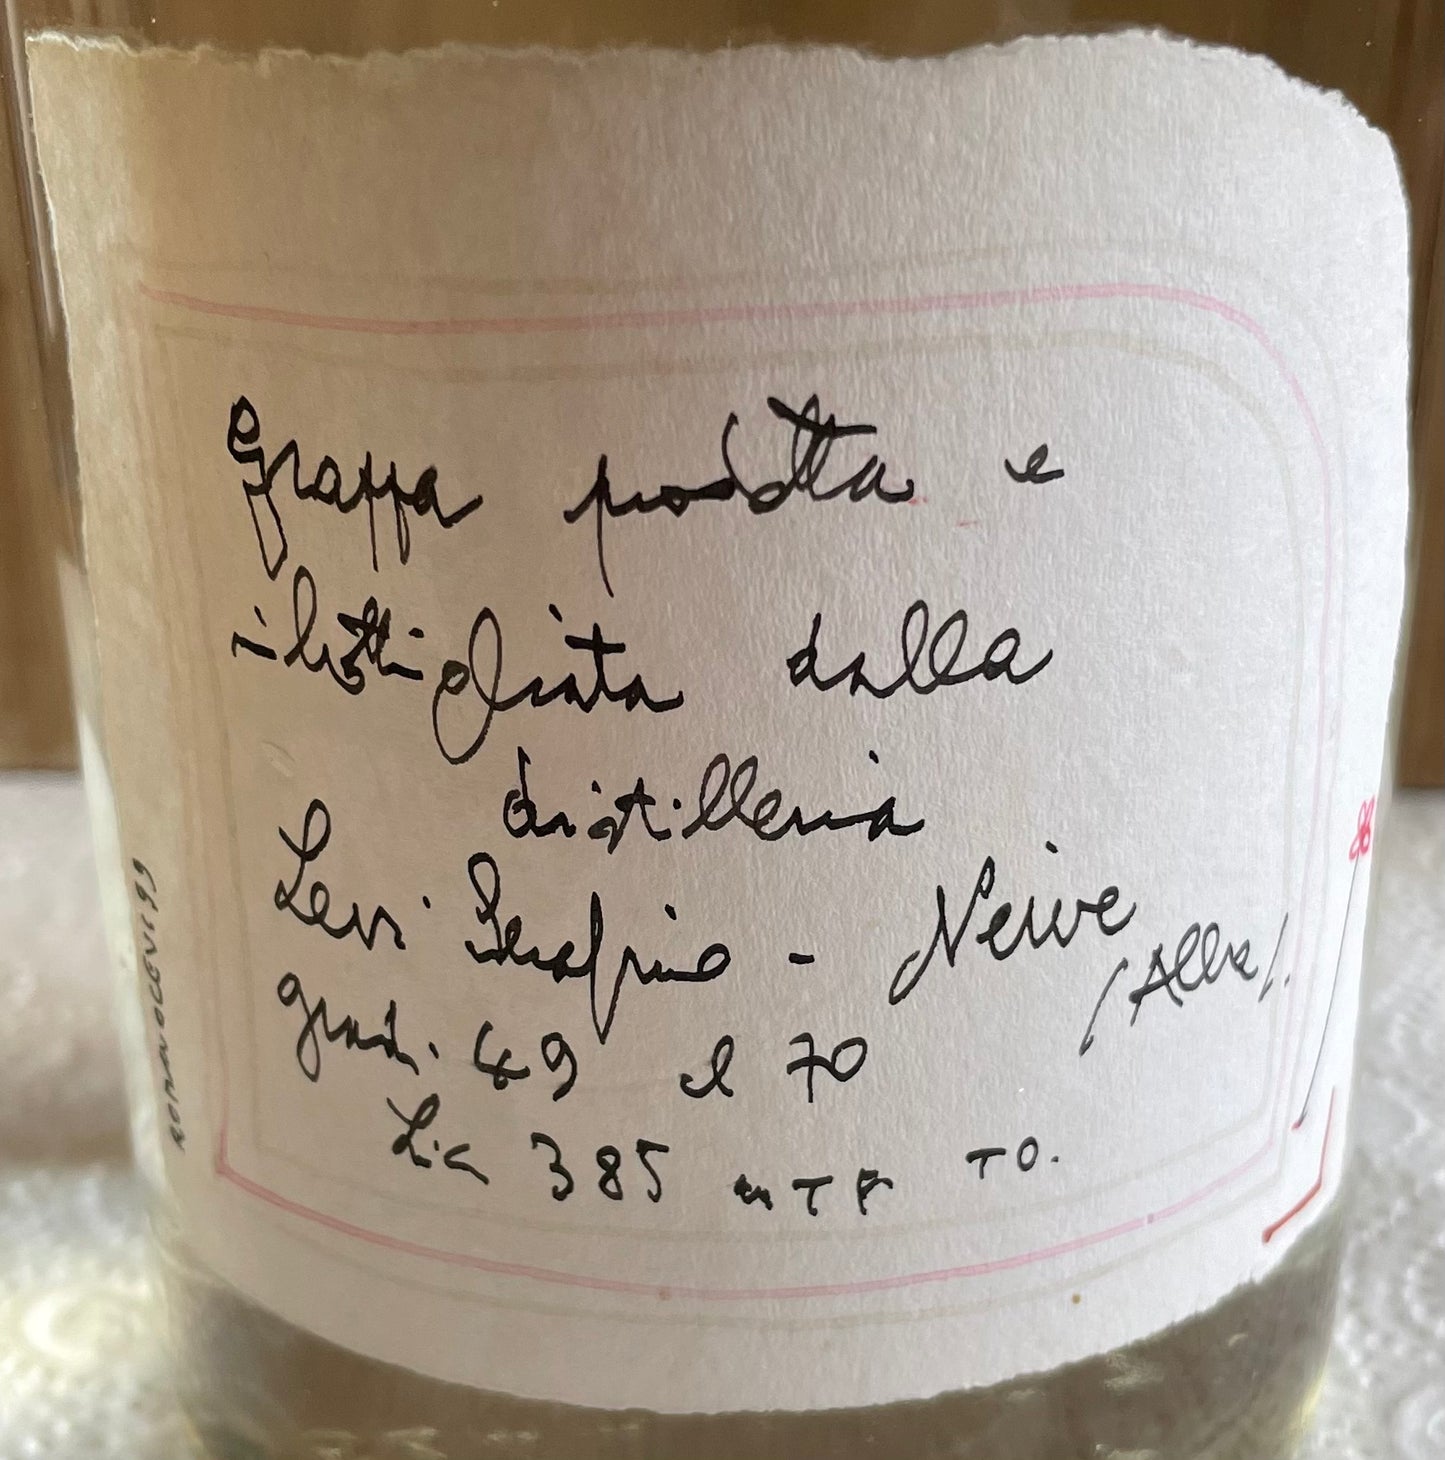 grappa prodotta e
imbottigliata dalla
distilleria
Levi Serafino - Neive
(Alba).
grad. 49 cl 70
Lic 385 UTF TO.
ROMANO LEVI 99